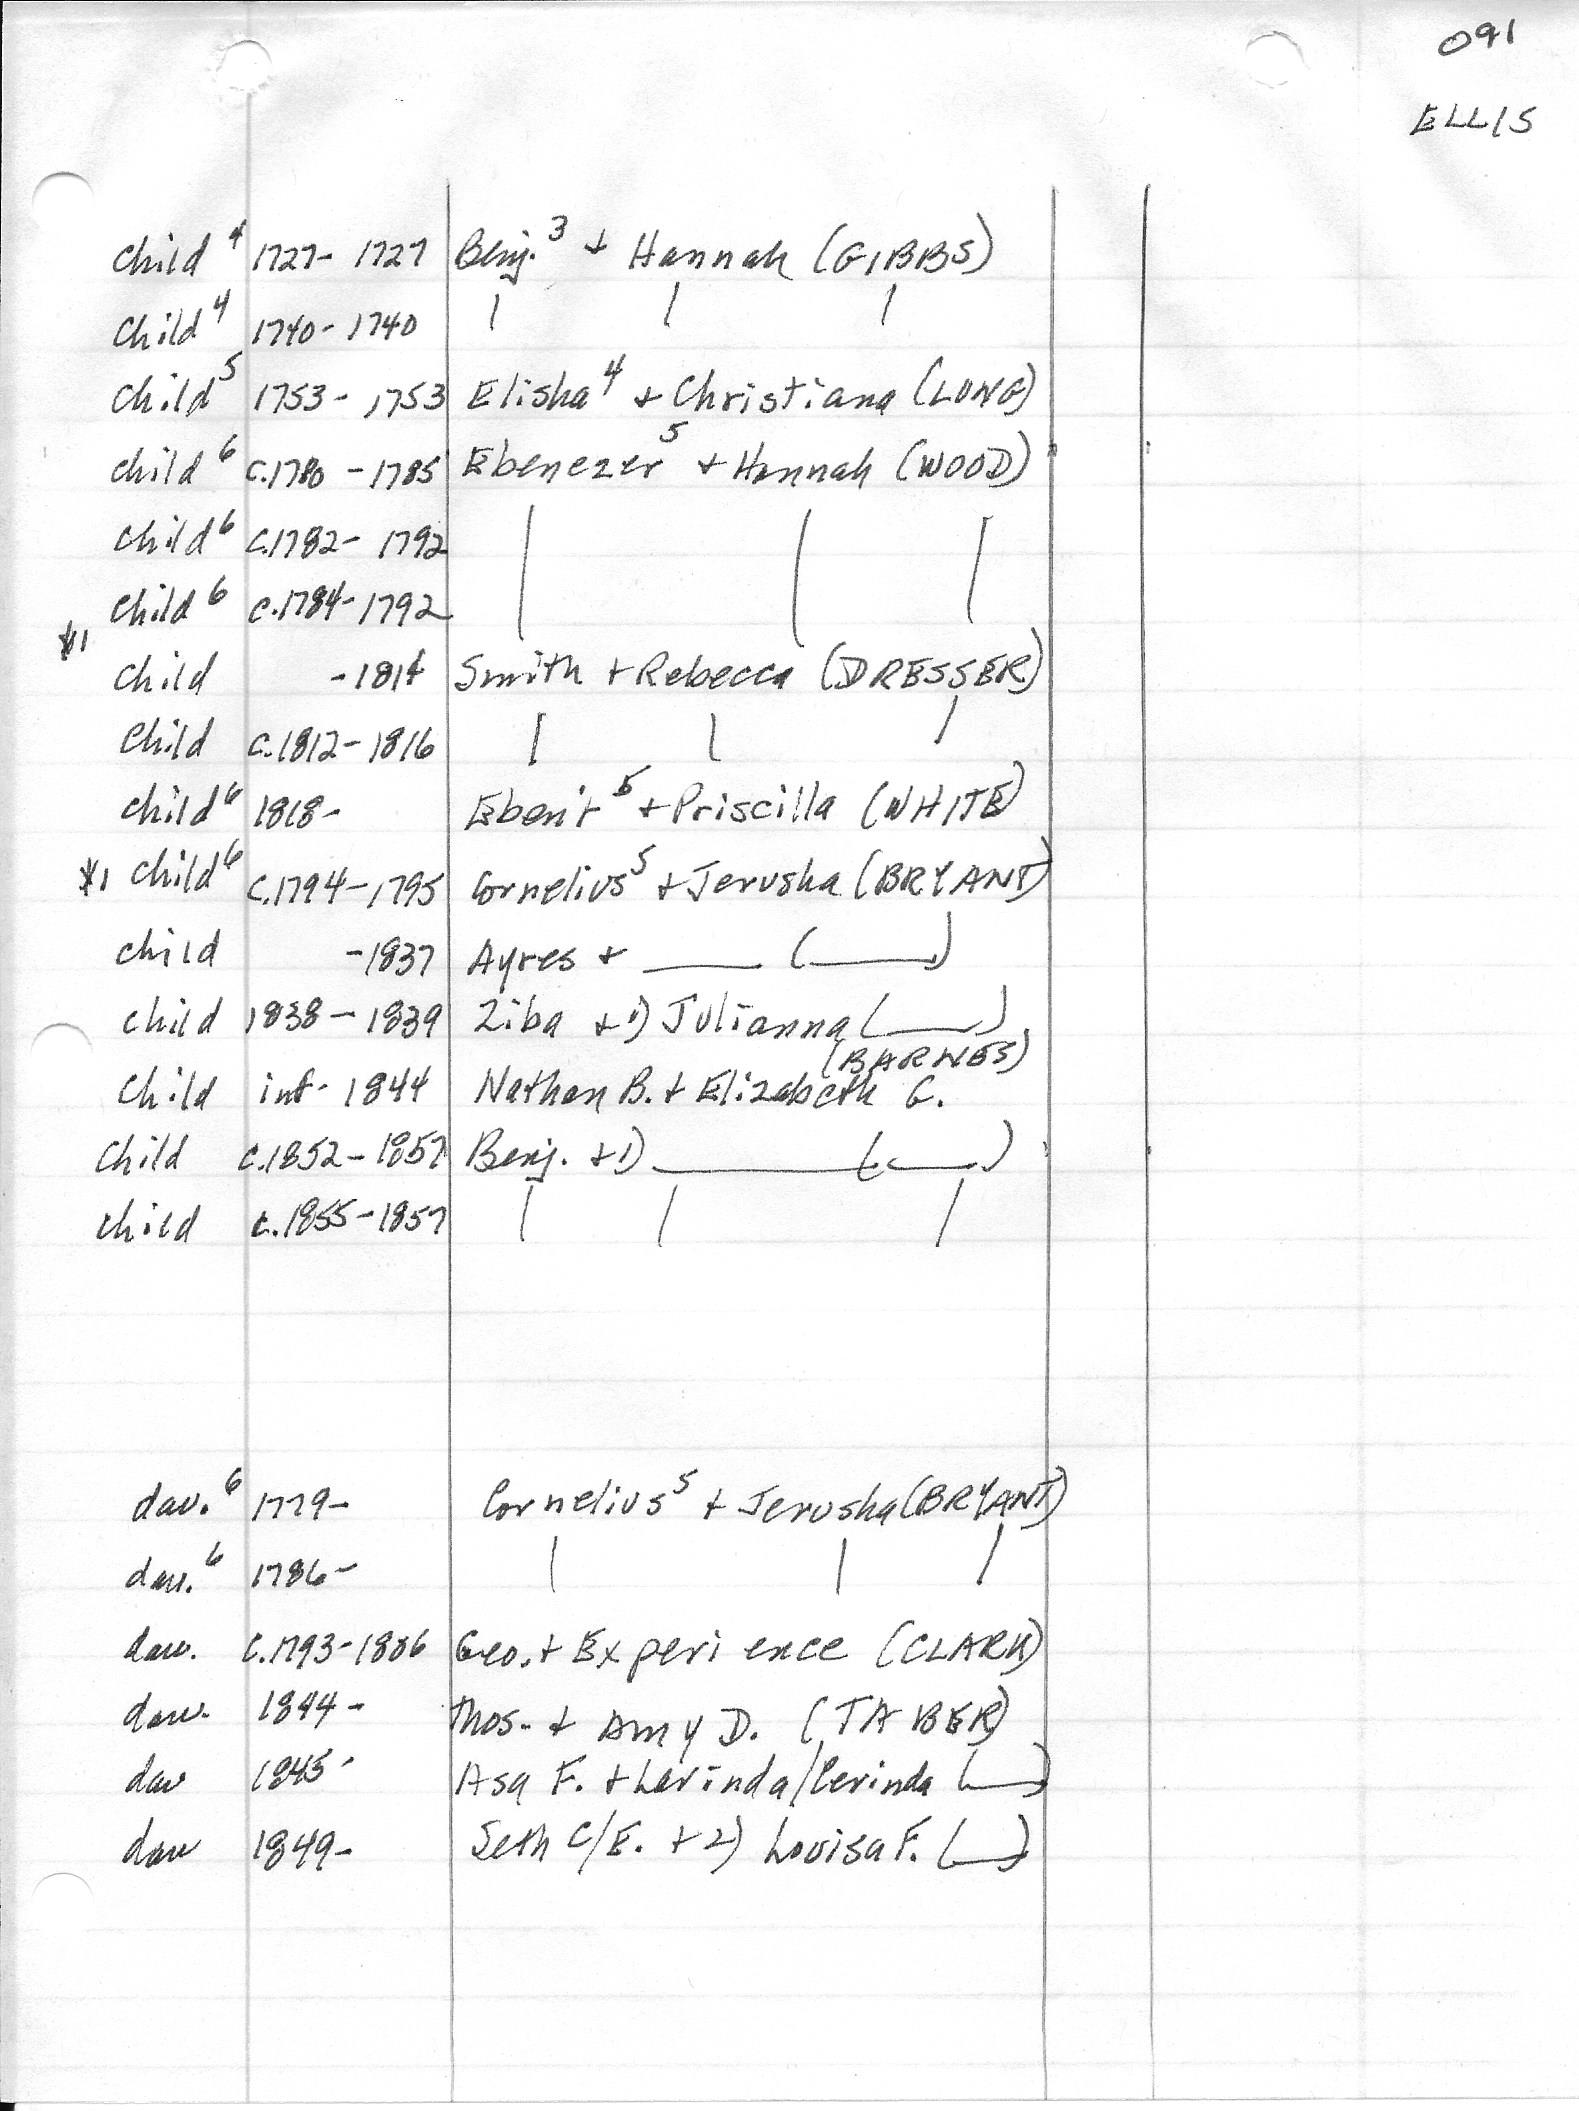 091
ELLIS
child⁴ 1727- 1727 Benj.³ + Hannah (GIBBS)
child⁴ 1740- 1740 | | |
child⁵ 1753- 1753 Elisha⁴ + Christiana (LONG)
child⁶ c.1780 -1785 Ebenezer⁵ + Hannah (WOOD)
child⁶ c.1782- 1792 | | |
child⁶ c.1784-1792
*1
child -1814 Smith + Rebecca (DRESSER)
child c.1812-1816 | | |
child⁶ 1818- Eben'r⁵ + Priscilla (WHITE)
*1 child⁶ c.1794-1795 Cornelius⁵ + Jerusha (BRYANT)
child -1837 Ayres + ____ (____)
child 1838-1839 Ziba +1) Julianna (____)
(BARNES)
child inf- 1844 Nathan B. + Elizabeth G.
child c.1852-1857 Benj. +1) ________ (____)
child c.1855-1857 | | |
dau.⁶ 1779- Cornelius⁵ + Jerusha (BRYANT)
dau.⁶ 1786- | | |
dau. c.1793-1806 Geo. + Experience (CLARK)
dau. 1844- Thos. + Amy D. (TABER)
dau 1845- Asa F. + Lavinda/Perinda (____)
dau 1849- Seth C/E. + 2) Louisa F. (___)